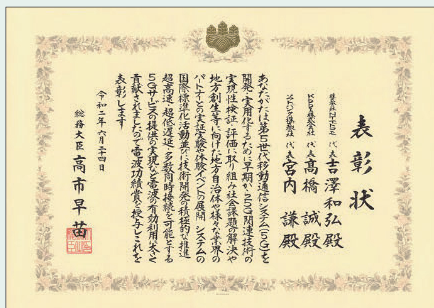 表彰状
株式会社NTTドコモ 代表 吉澤和弘殿
KDDI株式会社 代表 髙橋誠殿
ソフトバンク株式会社 代表 宮内謙殿
あなたがたは第5世代移動通信システム(5G)を
開発・実用化するために早期から5G関連技術の
実現性検証、評価に取り組み社会課題の解決や
地方創生等に向けた地方自治体や様々な業界の
パートナーとの実証実験や体験イベントの展開、システムの
国際標準化活動並びに技術開発の積極的な推進
超高速・超低遅延・多数同時接続を可能とする
5Gサービスの提供の実現など電波の有効利用に大いに
貢献されましたので電波功績賞を授与しこれを
表彰します
令和二年六月二十四日
総務大臣 高市早苗